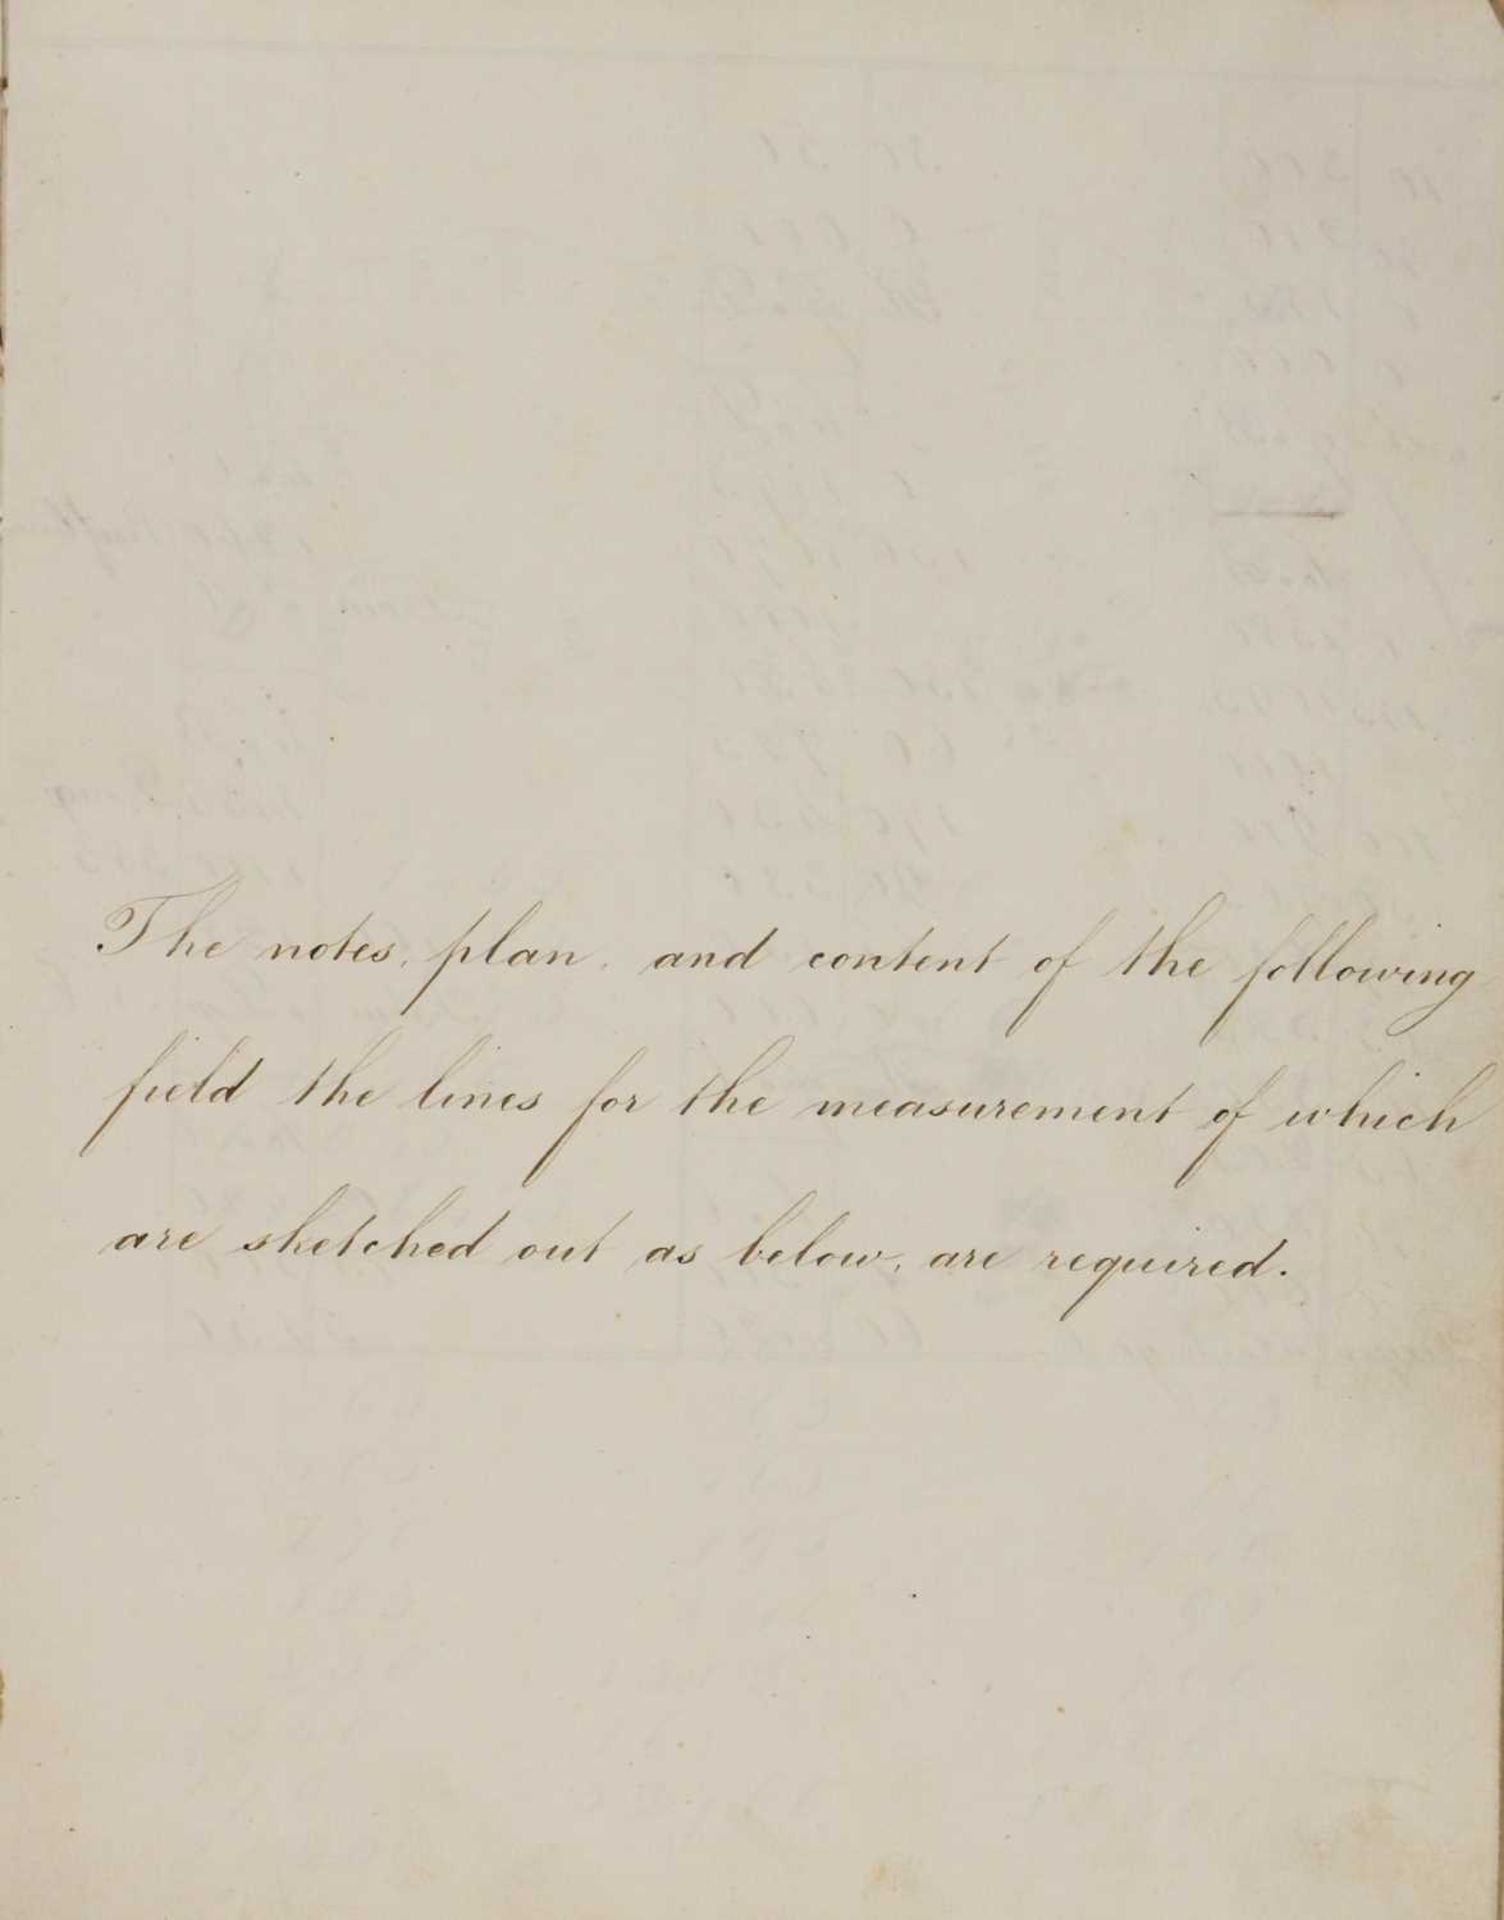 The notes, plan, and content of the following
field the lines for the measurement of which
are sketched out as below, are required.